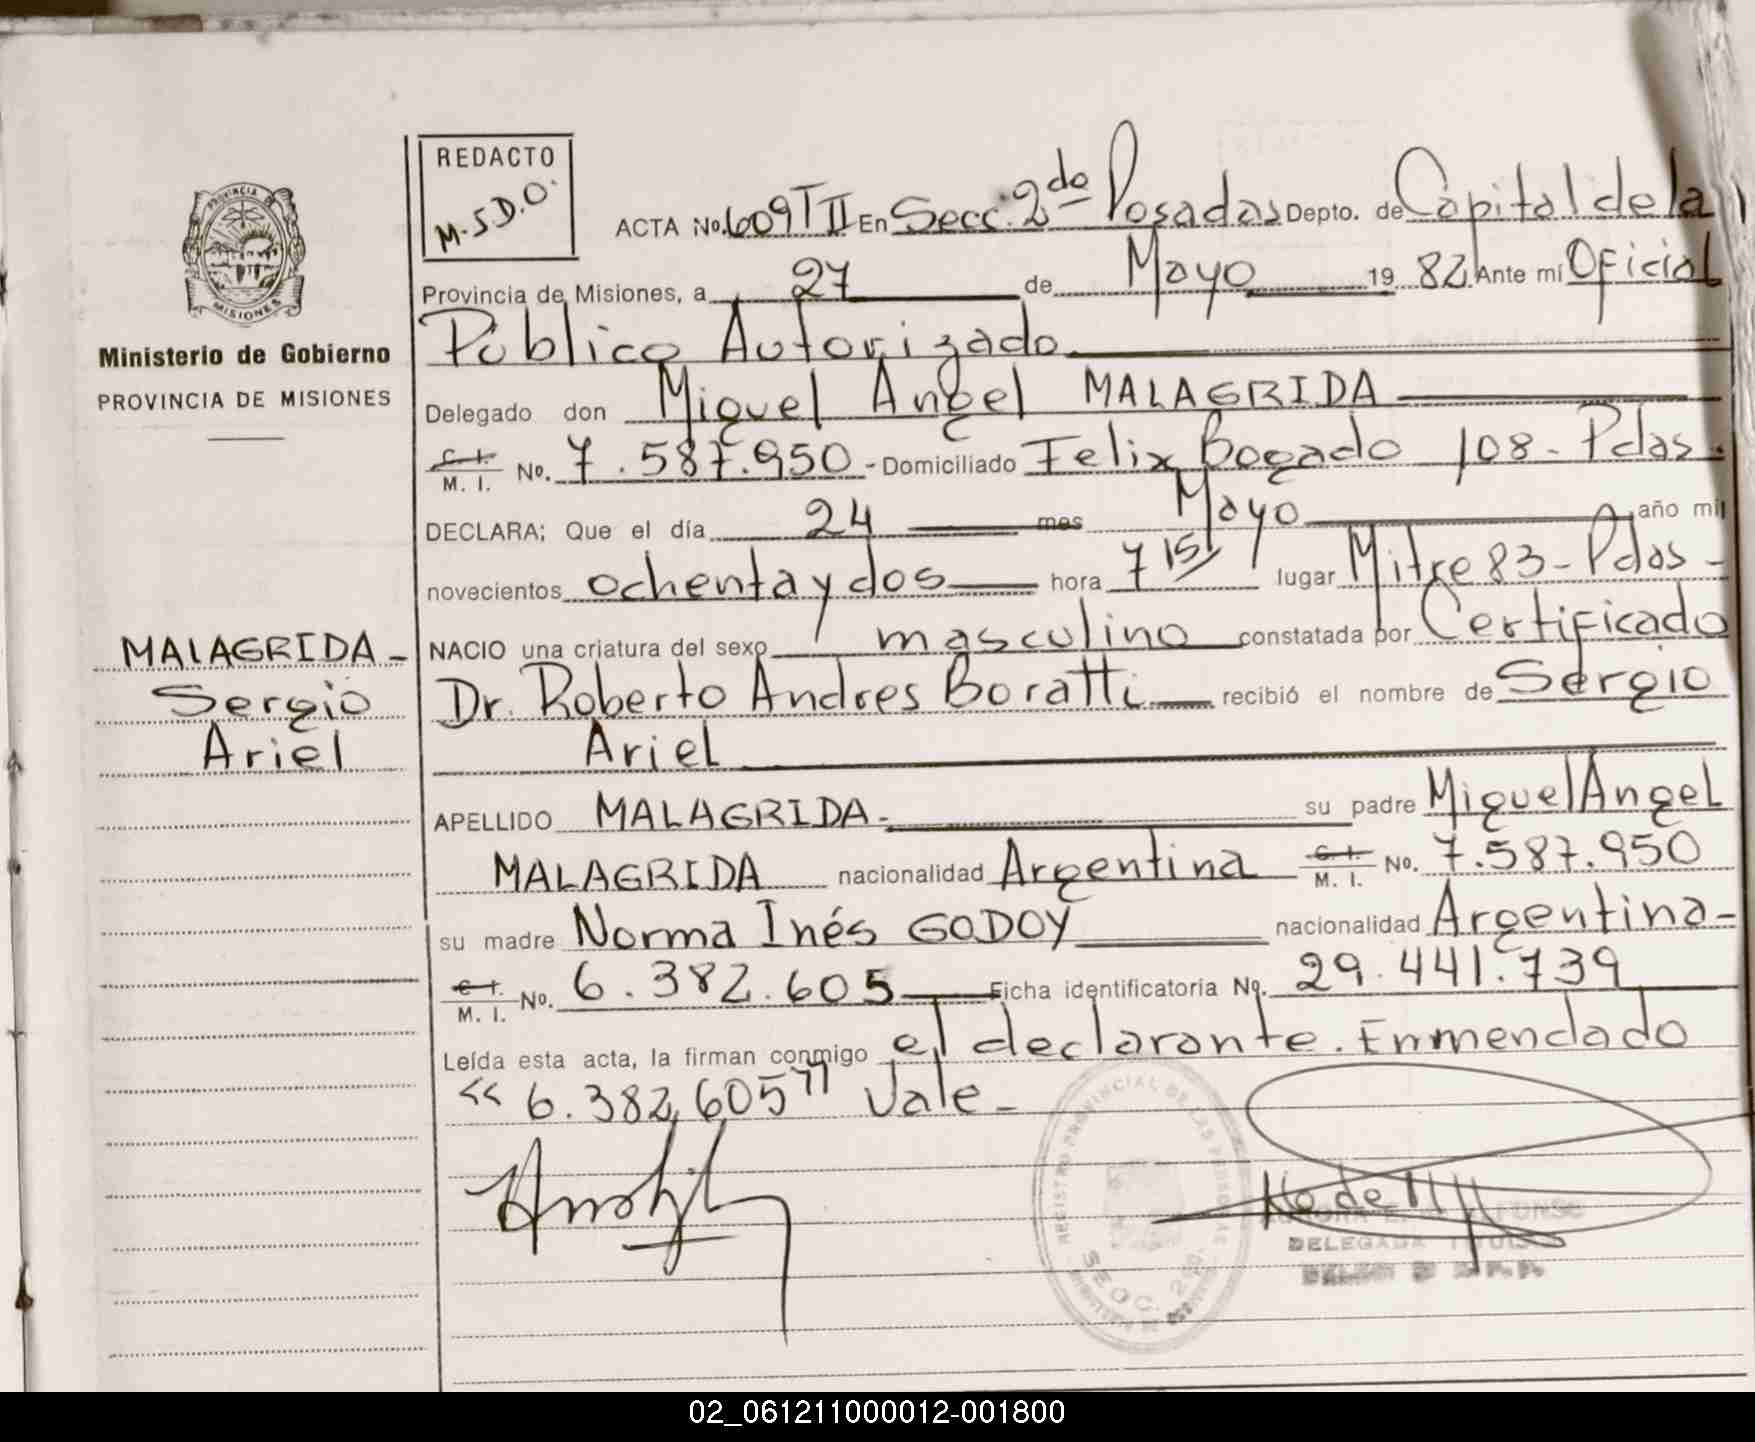 REDACTO
M.S.D.O.
PROVINCIA
MISIONES
Ministerio de Gobierno
PROVINCIA DE MISIONES
ACTA No. 609 T II En Secc. 2da Posadas Depto. de Capital de la
Provincia de Misiones, a 27 de Mayo 1982 Ante mí Oficial
Público Autorizado
Delegado don Miguel Angel MALAGRIDA
C. I. M. I. No. 7.587.950 - Domiciliado Felix Bogado 108 - Pdas.
DECLARA; Que el día 24 mes Mayo año mil
novecientos ochenta y dos hora 7 15 lugar Mitre 83 - Pdas -
NACIO una criatura del sexo masculino constatada por Certificado
Dr. Roberto Andres Boratti recibió el nombre de Sergio
Ariel
MALAGRIDA -
Sergio
Ariel
APELLIDO MALAGRIDA - su padre Miguel Angel
MALAGRIDA nacionalidad Argentina C. I. M. I. No. 7.587.950
su madre Norma Inés GODOY nacionalidad Argentina -
C. I. M. I. No. 6.382.605 Ficha identificatoria No. 29.441.739
Leída esta acta, la firman conmigo el declarante. Enmendado
"6.382,605" Vale -
REGISTRO PROVINCIAL DE LAS PERSONAS
SECC. 2da
DELEGADA
02_061211000012-001800